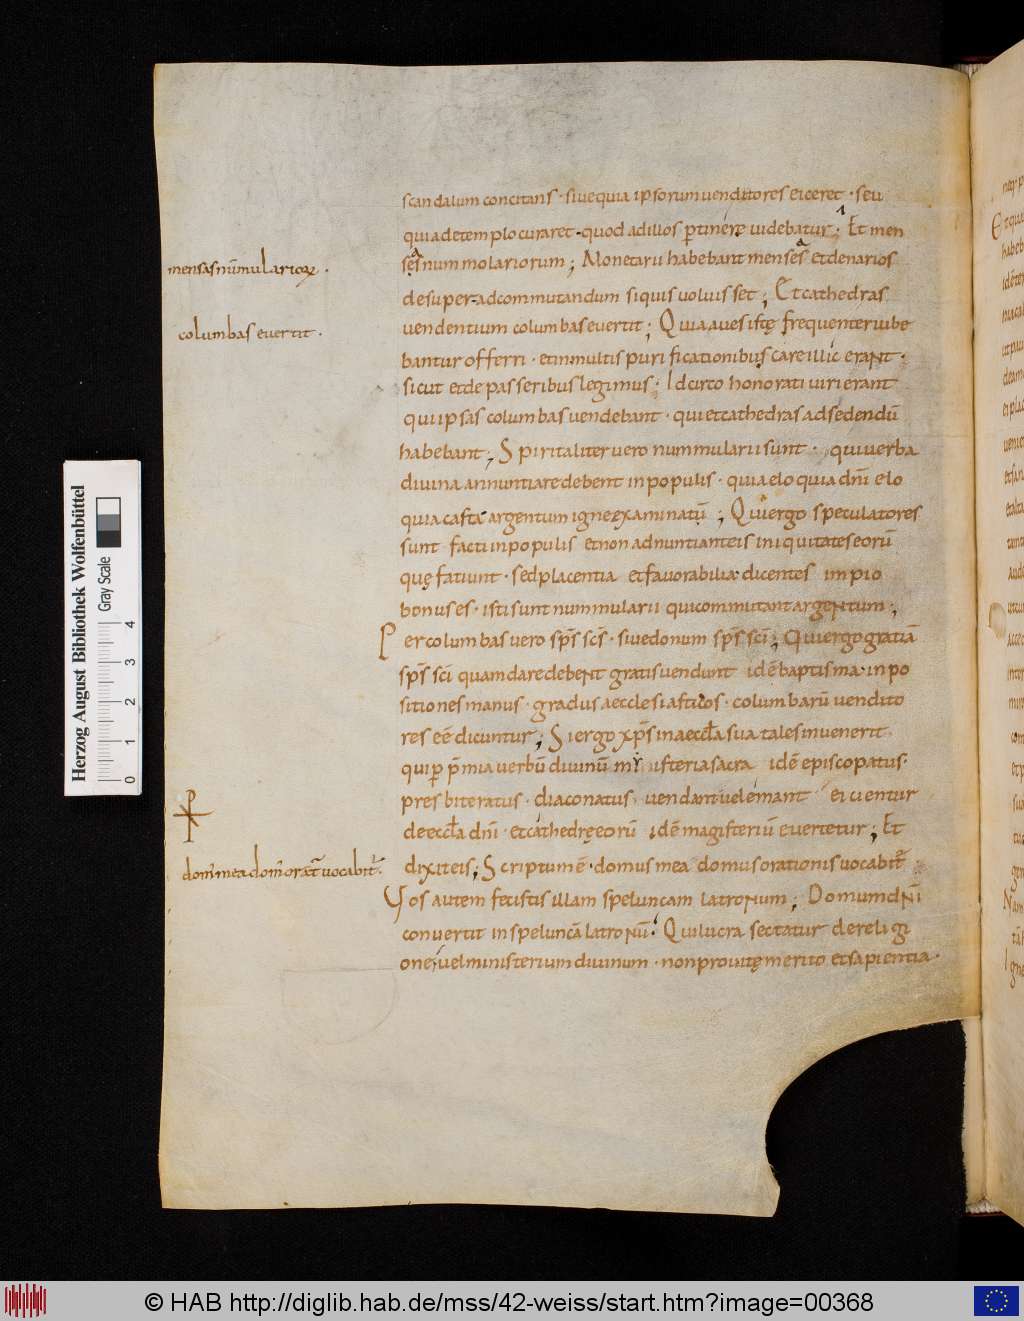 scandalum concitans · siue quia ipsorum uenditores eiceret · seu
quia de templo curaret · quod ad illos ptinere uidebatur ; Et men
sęs nummolariorum ; Monetarii habebant menses et denarios
desuper ad commutandum si quis uoluisset ; Et cathedras
uendentium columbas euertit ; Quia aues istę frequenter iube
bantur offerri · et in multis purificationibus care illic erant ·
sicut et de passeribus legimus ; Idcirco honorati uiri erant
qui ipsas columbas uendebant · qui et cathedras ad sedendū
habebant ; Spiritaliter uero nummularii sunt · qui uerba
diuina annuntiare debent in populis · quia eloquia dn̄i elo
quia casta argentum igne examinatū ; Qui ergo speculatores
sunt facti in populis et non adnuntiant eis iniquitates eorū
quę fatiunt · sed placentia et fauorabilia dicentes impio
bonus es · isti sunt nummularii qui commutant argentum ;
Per columbas uero sp̄s sc̄s · siue donum sp̄s sc̄i ; Qui ergo gratiā
sp̄s sc̄i quam dare debent gratis uendunt idē baptisma · inpo
sitiones manus · gradus aecclesiasticos · columbarū uendito
res eē dicuntur ; Si ergo xp̄s in aeccła sua tales inuenerit
qui p p̄mia uerbū diuinū mysteria sacra idē episcopatus ·
presbiteratus · diaconatus · uendant uel emant eicientur
de eccła dn̄i · et cathedrę eorū idē magisteriū euertetur ; Et
dixit eis ; Scriptum ē · domus mea domus orationis uocabit̄ ;
Vos autem fecistis illam speluncam latronum ; Domum dn̄i
conuertit in speluncā latronū · Qui lucra sectatur de religi
one · uel ministerium diuinum · non pro uitę merito et sapientia ·
mensas nūmulariorꝝ ·
columbas euertit ·
dom' mea dom' orat̄ uocabit̄ ·
Herzog August Bibliothek Wolfenbüttel
Gray Scale
0 1 2 3 4
© HAB http://diglib.hab.de/mss/42-weiss/start.htm?image=00368